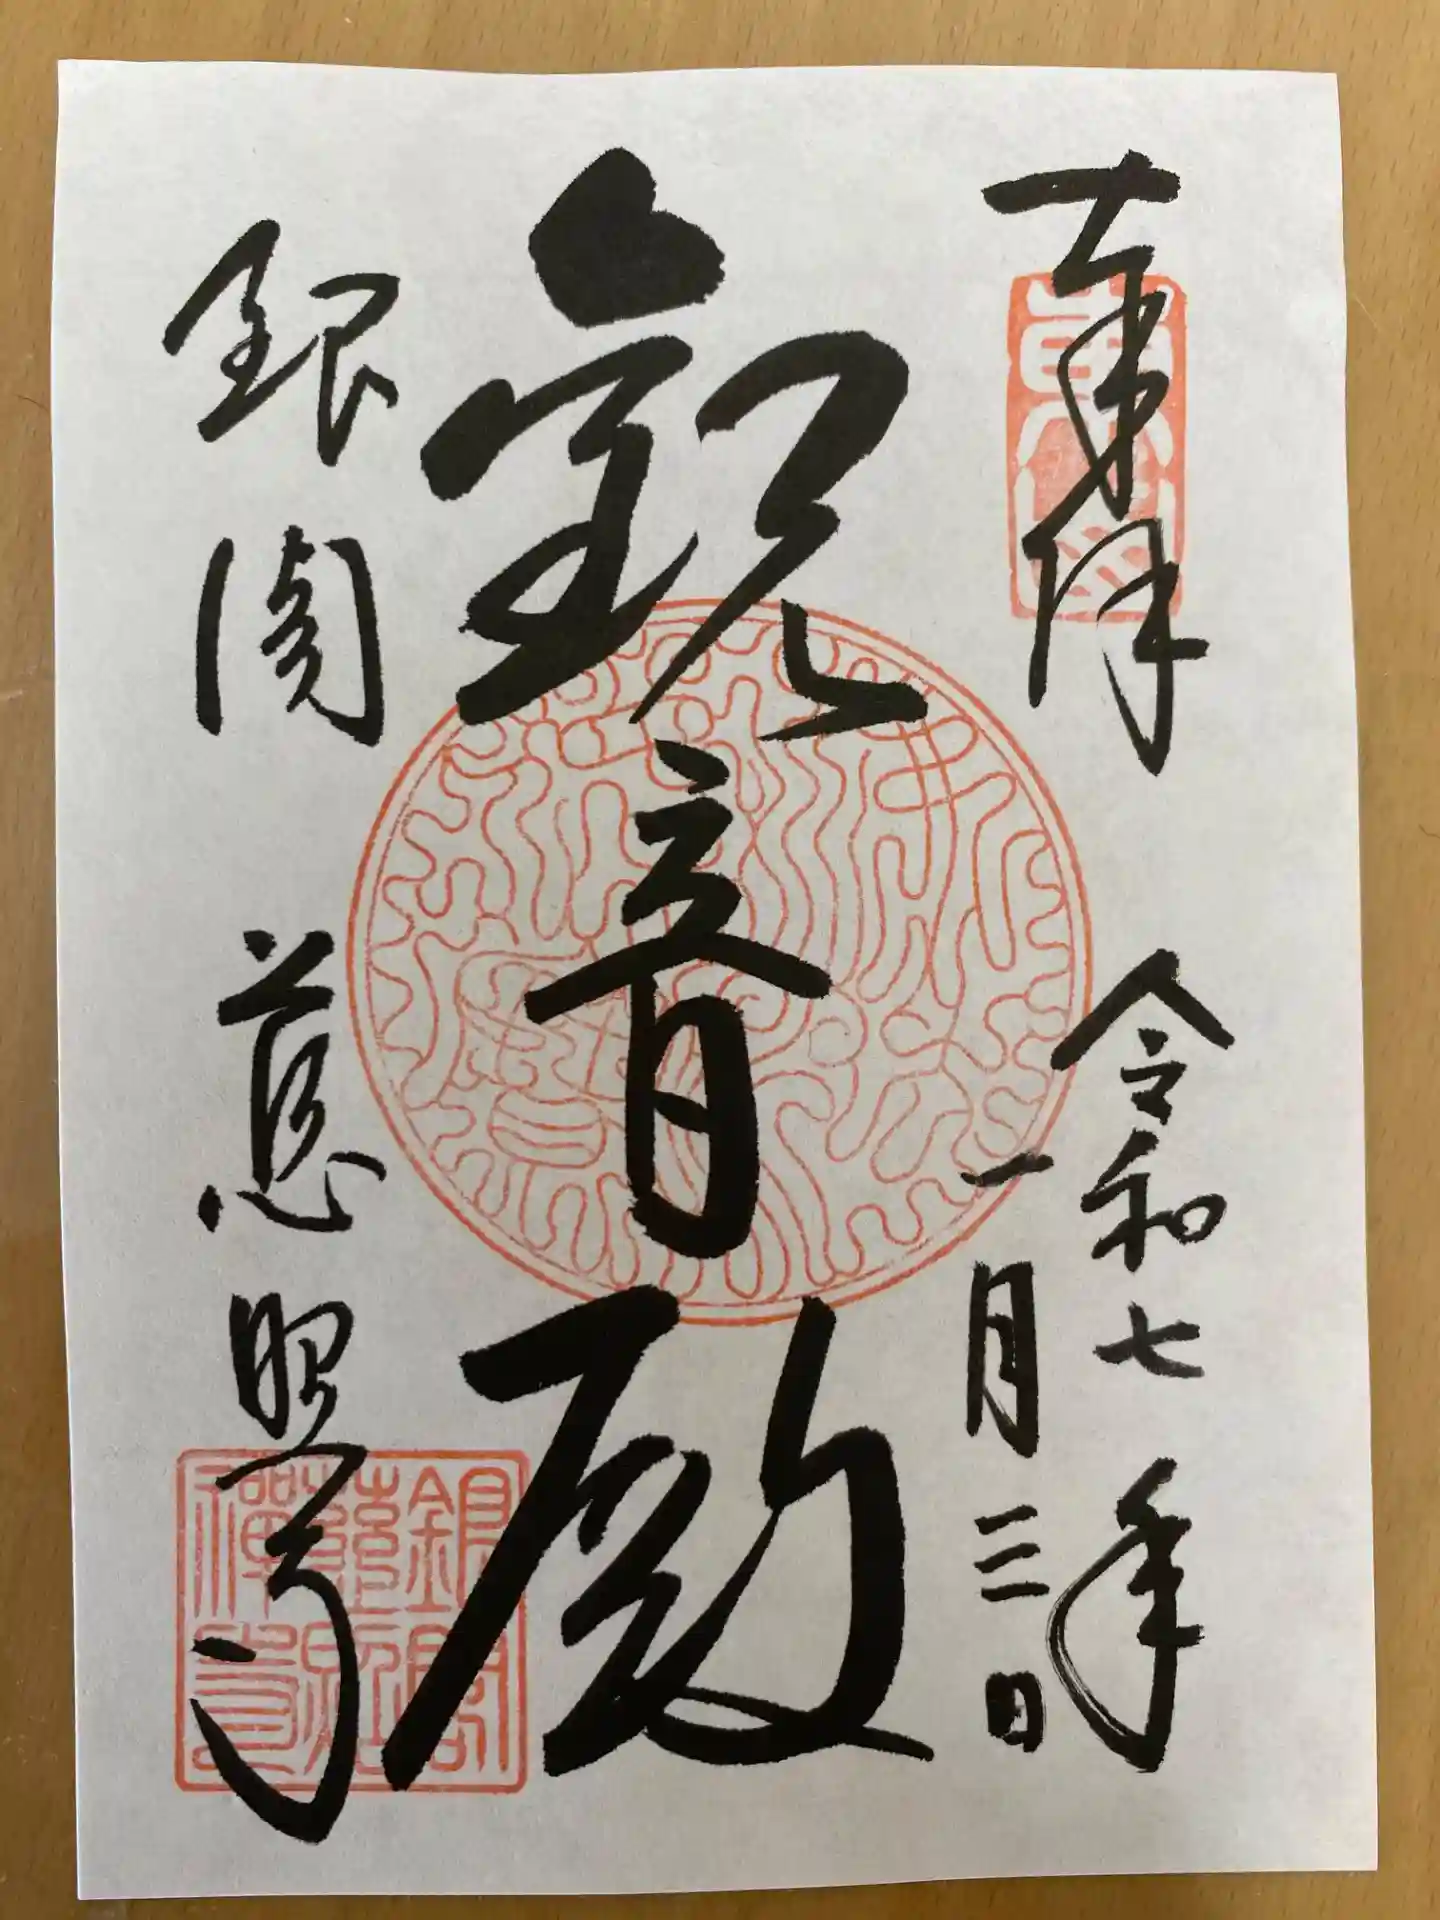 奉拝
令和七年
一月三日
観音殿
銀閣 慈照寺
銀閣
慈照
禪寺